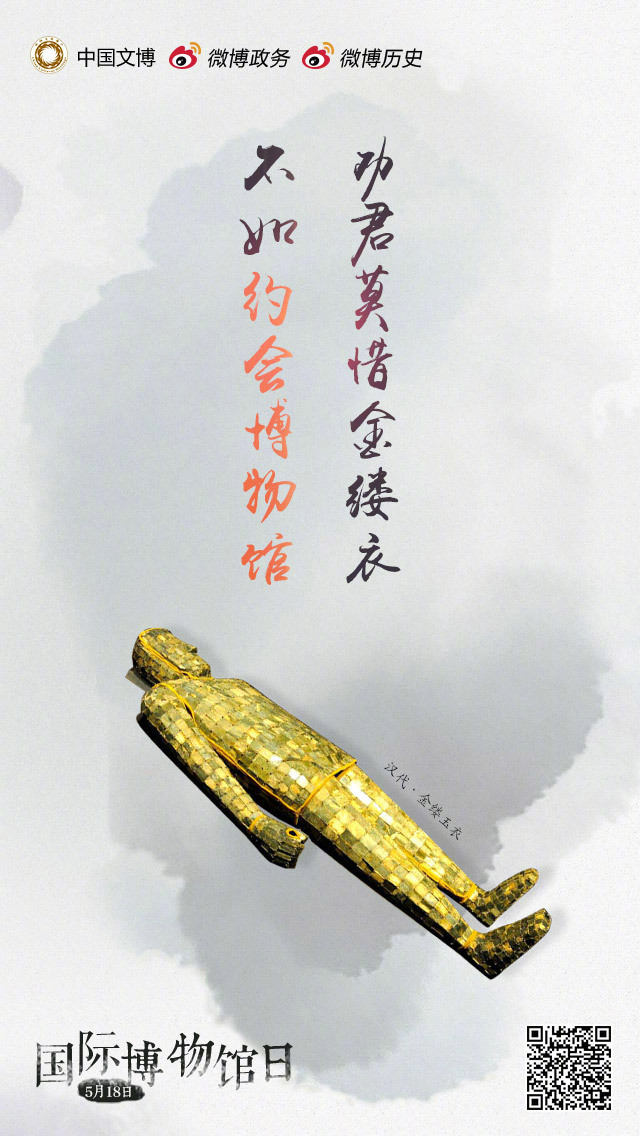 中国文博 微博政务 微博历史
劝君莫惜金缕衣
不如约会博物馆
汉代·金缕玉衣
国际博物馆日
5月18日